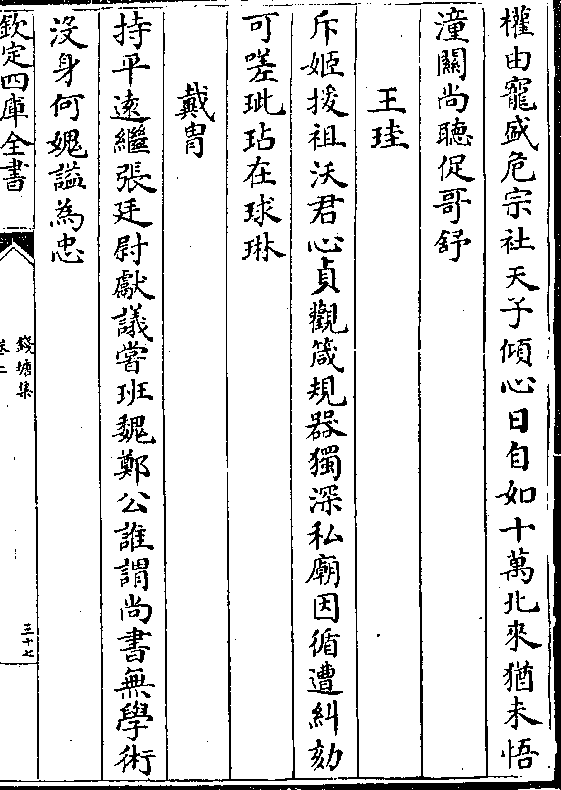 權由寵盛危宗社天子傾心日自如十萬北來猶未悟
潼關尚聽促哥舒
王珪
斥姬援祖沃君心貞觀箴規器獨深私廟因循遭糾劾
可嗟玼玷在球琳
戴冑
持平遠繼張廷尉獻議嘗班魏鄭公誰謂尚書無學術
沒身何媿諡為忠
欽定四庫全書
錢塘集
卷二
三十七